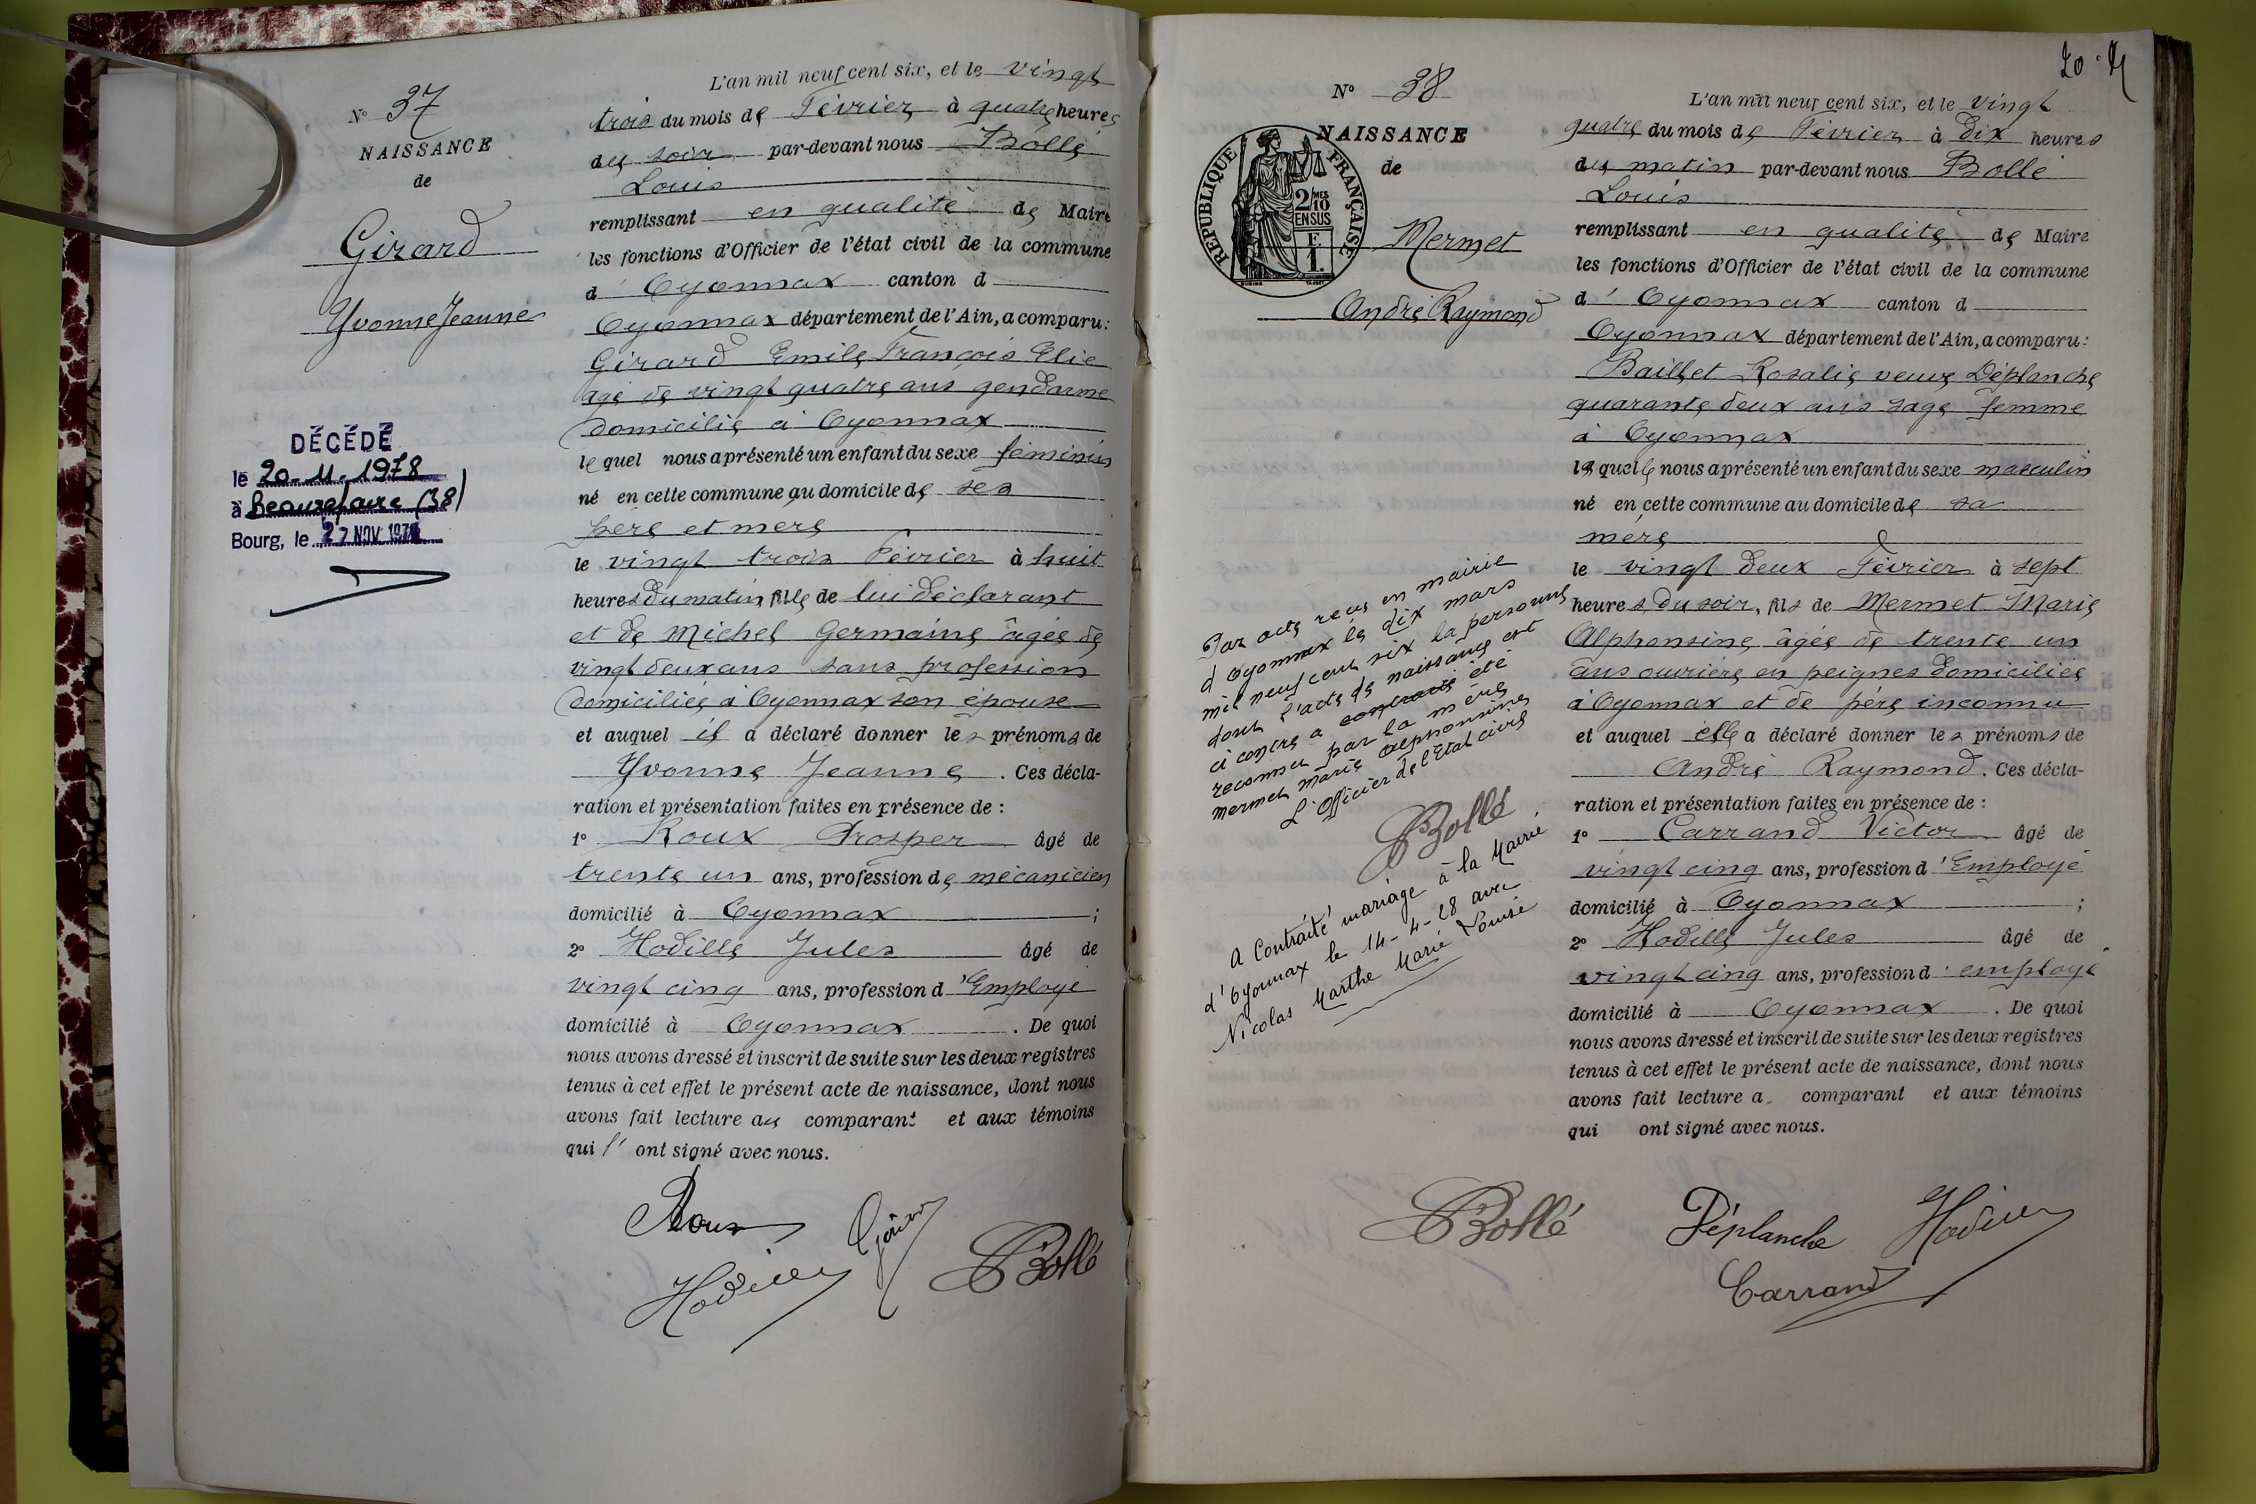 N° 37
NAISSANCE
de
Girard
Yvonne Jeanne
DÉCÉDÉ
le 20-11-1978
à Beaurepaire (38)
Bourg, le 27 NOV. 1978
L'an mil neuf cent six, et le vingt
trois du mois de Février à quatre heures
du soir par-devant nous Bollé
Louis
remplissant en qualité de Maire
les fonctions d'Officier de l'état civil de la commune
d'Oyonnax canton d
Oyonnax département de l'Ain, a comparu:
Girard Emile François Elie
âgé de vingt quatre ans gendarme
domicilié à Oyonnax
lequel nous a présenté un enfant du sexe féminin
né en cette commune au domicile de ses
père et mère
le vingt trois Février à huit
heures du matin, fille de lui déclarant
et de Michel Germaine âgée de
vingt deux ans sans profession
domiciliée à Oyonnax son épouse
et auquel il a déclaré donner les prénoms de
Yvonne Jeanne. Ces décla-
ration et présentation faites en présence de :
1° Roux Prosper âgé de
trente un ans, profession de mécanicien
domicilié à Oyonnax ;
2° Hodille Jules âgé de
vingt cinq ans, profession d'Employé
domicilié à Oyonnax. De quoi
nous avons dressé et inscrit de suite sur les deux registres
tenus à cet effet le présent acte de naissance, dont nous
avons fait lecture au comparant et aux témoins
qui l' ont signé avec nous.
Roux Girard
Hodille Bollé
20
N° 38
NAISSANCE
de
RÉPUBLIQUE FRANÇAISE
2/10 MES
EN SUS
F.
1.
Mermet
André Raymond
Par acte reçu en mairie
d'Oyonnax le dix mars
mil neuf cent six la personne
dont l'acte de naissance est
ci contre a contracté été
reconnu par la mère
Mermet Marie Alphonsine
L'Officier de l'Etat civil
Bollé
A Contracté mariage à la Mairie
d'Oyonnax le 14-4-28 avec
Nicolas Marthe Marie Louise
L'an mil neuf cent six, et le vingt
quatre du mois de Février à dix heures
du matin par-devant nous Bollé
Louis
remplissant en qualité de Maire
les fonctions d'Officier de l'état civil de la commune
d'Oyonnax canton d
Oyonnax département de l'Ain, a comparu:
Baillet Rosalie veuve Déplanche
quarante deux ans sage femme
à Oyonnax
laquelle nous a présenté un enfant du sexe masculin
né en cette commune au domicile de sa
mère
le vingt deux Février à sept
heures du soir, fils de Mermet Marie
Alphonsine âgée de trente un
ans ouvrière en peignes domiciliée
à Oyonnax et de père inconnu
et auquel elle a déclaré donner les prénoms de
André Raymond. Ces décla-
ration et présentation faites en présence de :
1° Carrand Victor âgé de
vingt cinq ans, profession d'Employé
domicilié à Oyonnax ;
2° Hodille Jules âgé de
vingt cinq ans, profession d'employé
domicilié à Oyonnax. De quoi
nous avons dressé et inscrit de suite sur les deux registres
tenus à cet effet le présent acte de naissance, dont nous
avons fait lecture a comparant et aux témoins
qui ont signé avec nous.
Bollé Déplanche Hodille
Carrand